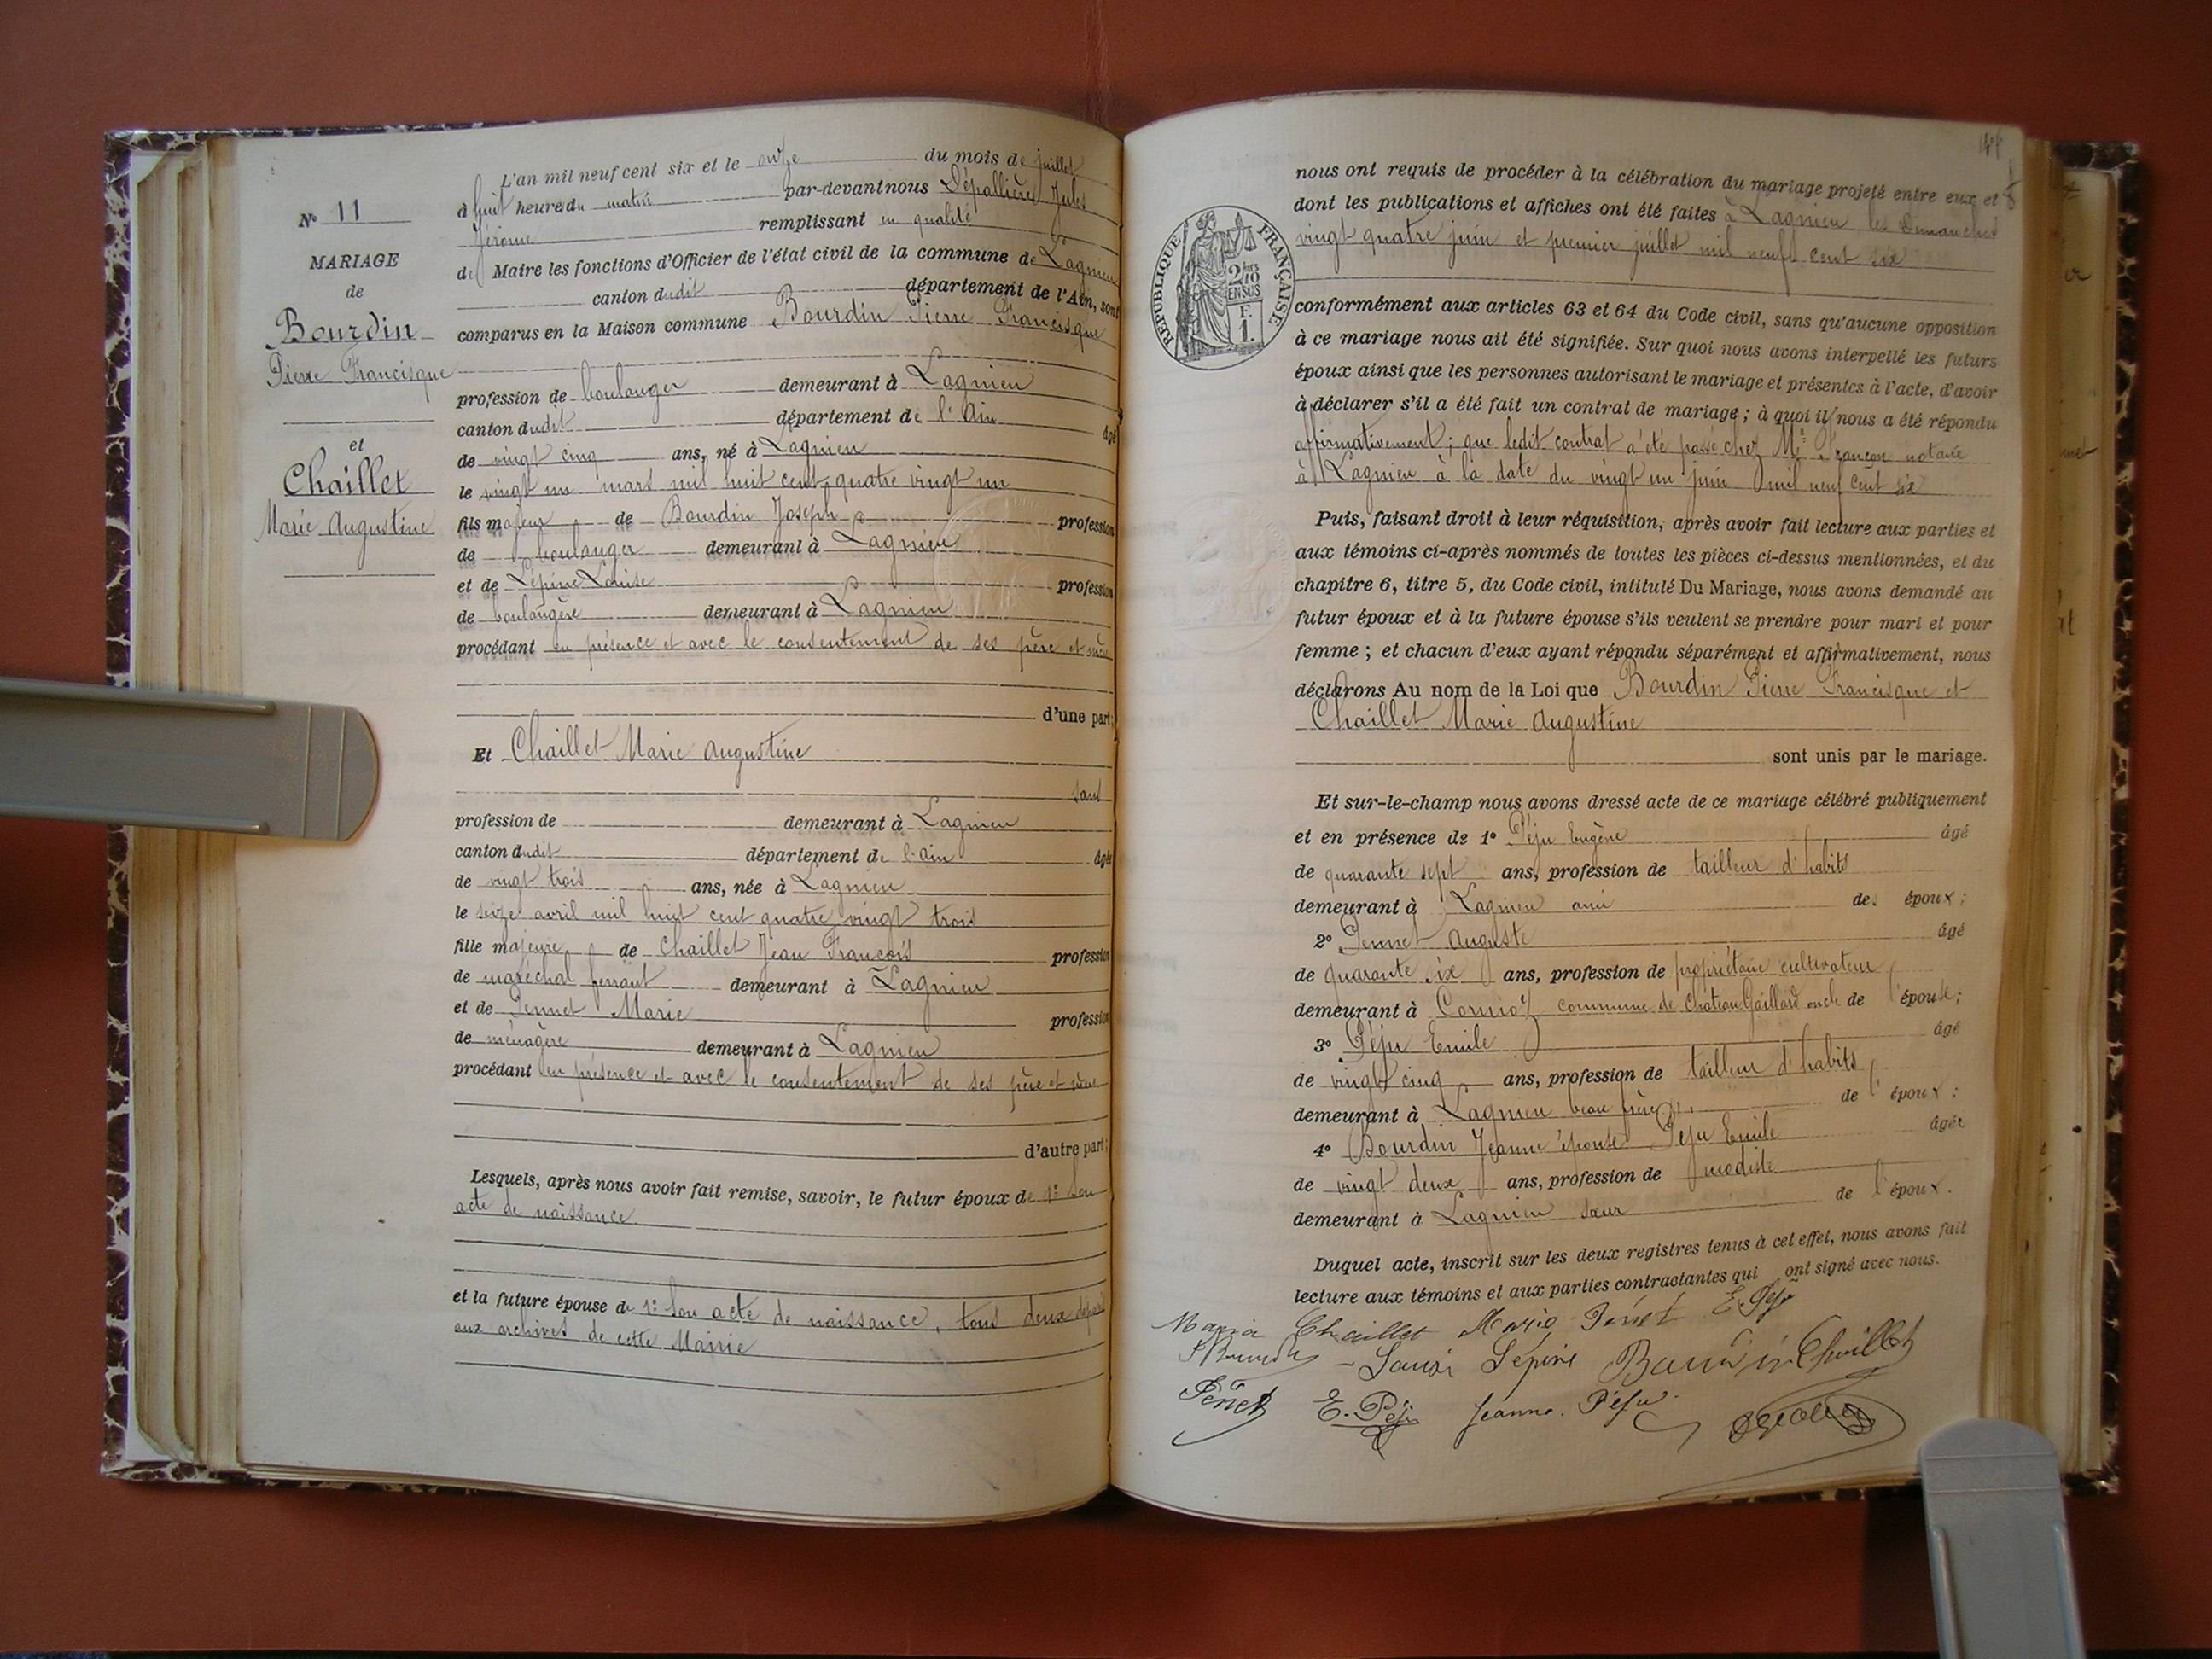 N° 11
MARIAGE
de
Bourdin
Pierre Francisque
et
Chaillet
Marie Augustine
L'an mil neuf cent six et le onze du mois de juillet
à huit heures du matin par-devant nous Dépallière Jules
Jérôme remplissant en qualité
de Maire les fonctions d'Officier de l'état civil de la commune de Lagnieu
canton dudit département de l'Ain, sont
comparus en la Maison commune Bourdin Pierre Francisque
profession de boulanger demeurant à Lagnieu
canton dudit département de l'Ain âgé
de vingt cinq ans, né à Lagnieu
le vingt un mars mil huit cent quatre vingt un
fils majeur de Bourdin Joseph profession
de boulanger demeurant à Lagnieu
et de Lépine Louise profession
de boulangère demeurant à Lagnieu
procédant en présence et avec le consentement de ses père et mère
d'une part;
Et Chaillet Marie Augustine
sans
profession de demeurant à Lagnieu
canton dudit département de l'Ain âgée
de vingt trois ans, née à Lagnieu
le seize avril mil huit cent quatre vingt trois
fille majeure de Chaillet Jean François profession
de maréchal ferrant demeurant à Lagnieu
et de Pennet Marie profession
de ménagère demeurant à Lagnieu
procédant en présence et avec le consentement de ses père et mère
d'autre part;
Lesquels, après nous avoir fait remise, savoir, le futur époux de 1° Son
acte de naissance.
et la future épouse de 1° Son acte de naissance, tous deux déposés
aux archives de cette Mairie
nous ont requis de procéder à la célébration du mariage projeté entre eux et
dont les publications et affiches ont été faites à Lagnieu les Dimanches
vingt quatre juin et premier juillet mil neuf cent six
RÉPUBLIQUE FRANÇAISE
2/10 EN SUS
F.
1.
conformément aux articles 63 et 64 du Code civil, sans qu'aucune opposition
à ce mariage nous ait été signifiée. Sur quoi nous avons interpellé les futurs
époux ainsi que les personnes autorisant le mariage et présentes à l'acte, d'avoir
à déclarer s'il a été fait un contrat de mariage; à quoi il nous a été répondu
affirmativement; que ledit contrat a été passé chez Me Françon notaire
à Lagnieu à la date du vingt un juin mil neuf cent six
Puis, faisant droit à leur réquisition, après avoir fait lecture aux parties et
aux témoins ci-après nommés de toutes les pièces ci-dessus mentionnées, et du
chapitre 6, titre 5, du Code civil, intitulé Du Mariage, nous avons demandé au
futur époux et à la future épouse s'ils veulent se prendre pour mari et pour
femme; et chacun d'eux ayant répondu séparément et affirmativement, nous
déclarons Au nom de la Loi que Bourdin Pierre Francisque et
Chaillet Marie Augustine
sont unis par le mariage.
Et sur-le-champ nous avons dressé acte de ce mariage célébré publiquement
et en présence de 1° Péju Eugène âgé
de quarante sept ans, profession de tailleur d'habits
demeurant à Lagnieu ami des époux;
2° Pennet Auguste âgé
de quarante six ans, profession de propriétaire cultivateur
demeurant à Cormoz commune de Château Gaillard oncle de l'épouse;
3° Péju Emile âgé
de vingt cinq ans, profession de tailleur d'habits
demeurant à Lagnieu beau frère de l'époux:
4° Bourdin Jeanne épouse Péju Emile âgée
de vingt deux ans, profession de modiste
demeurant à Lagnieu sœur de l'époux.
Duquel acte, inscrit sur les deux registres tenus à cet effet, nous avons fait
lecture aux témoins et aux parties contractantes qui ont signé avec nous.
Maria Chaillet Marie Pennet E. Péju
Louise Lépine Bourdin Chaillet
E. Péju Jeanne. Péju